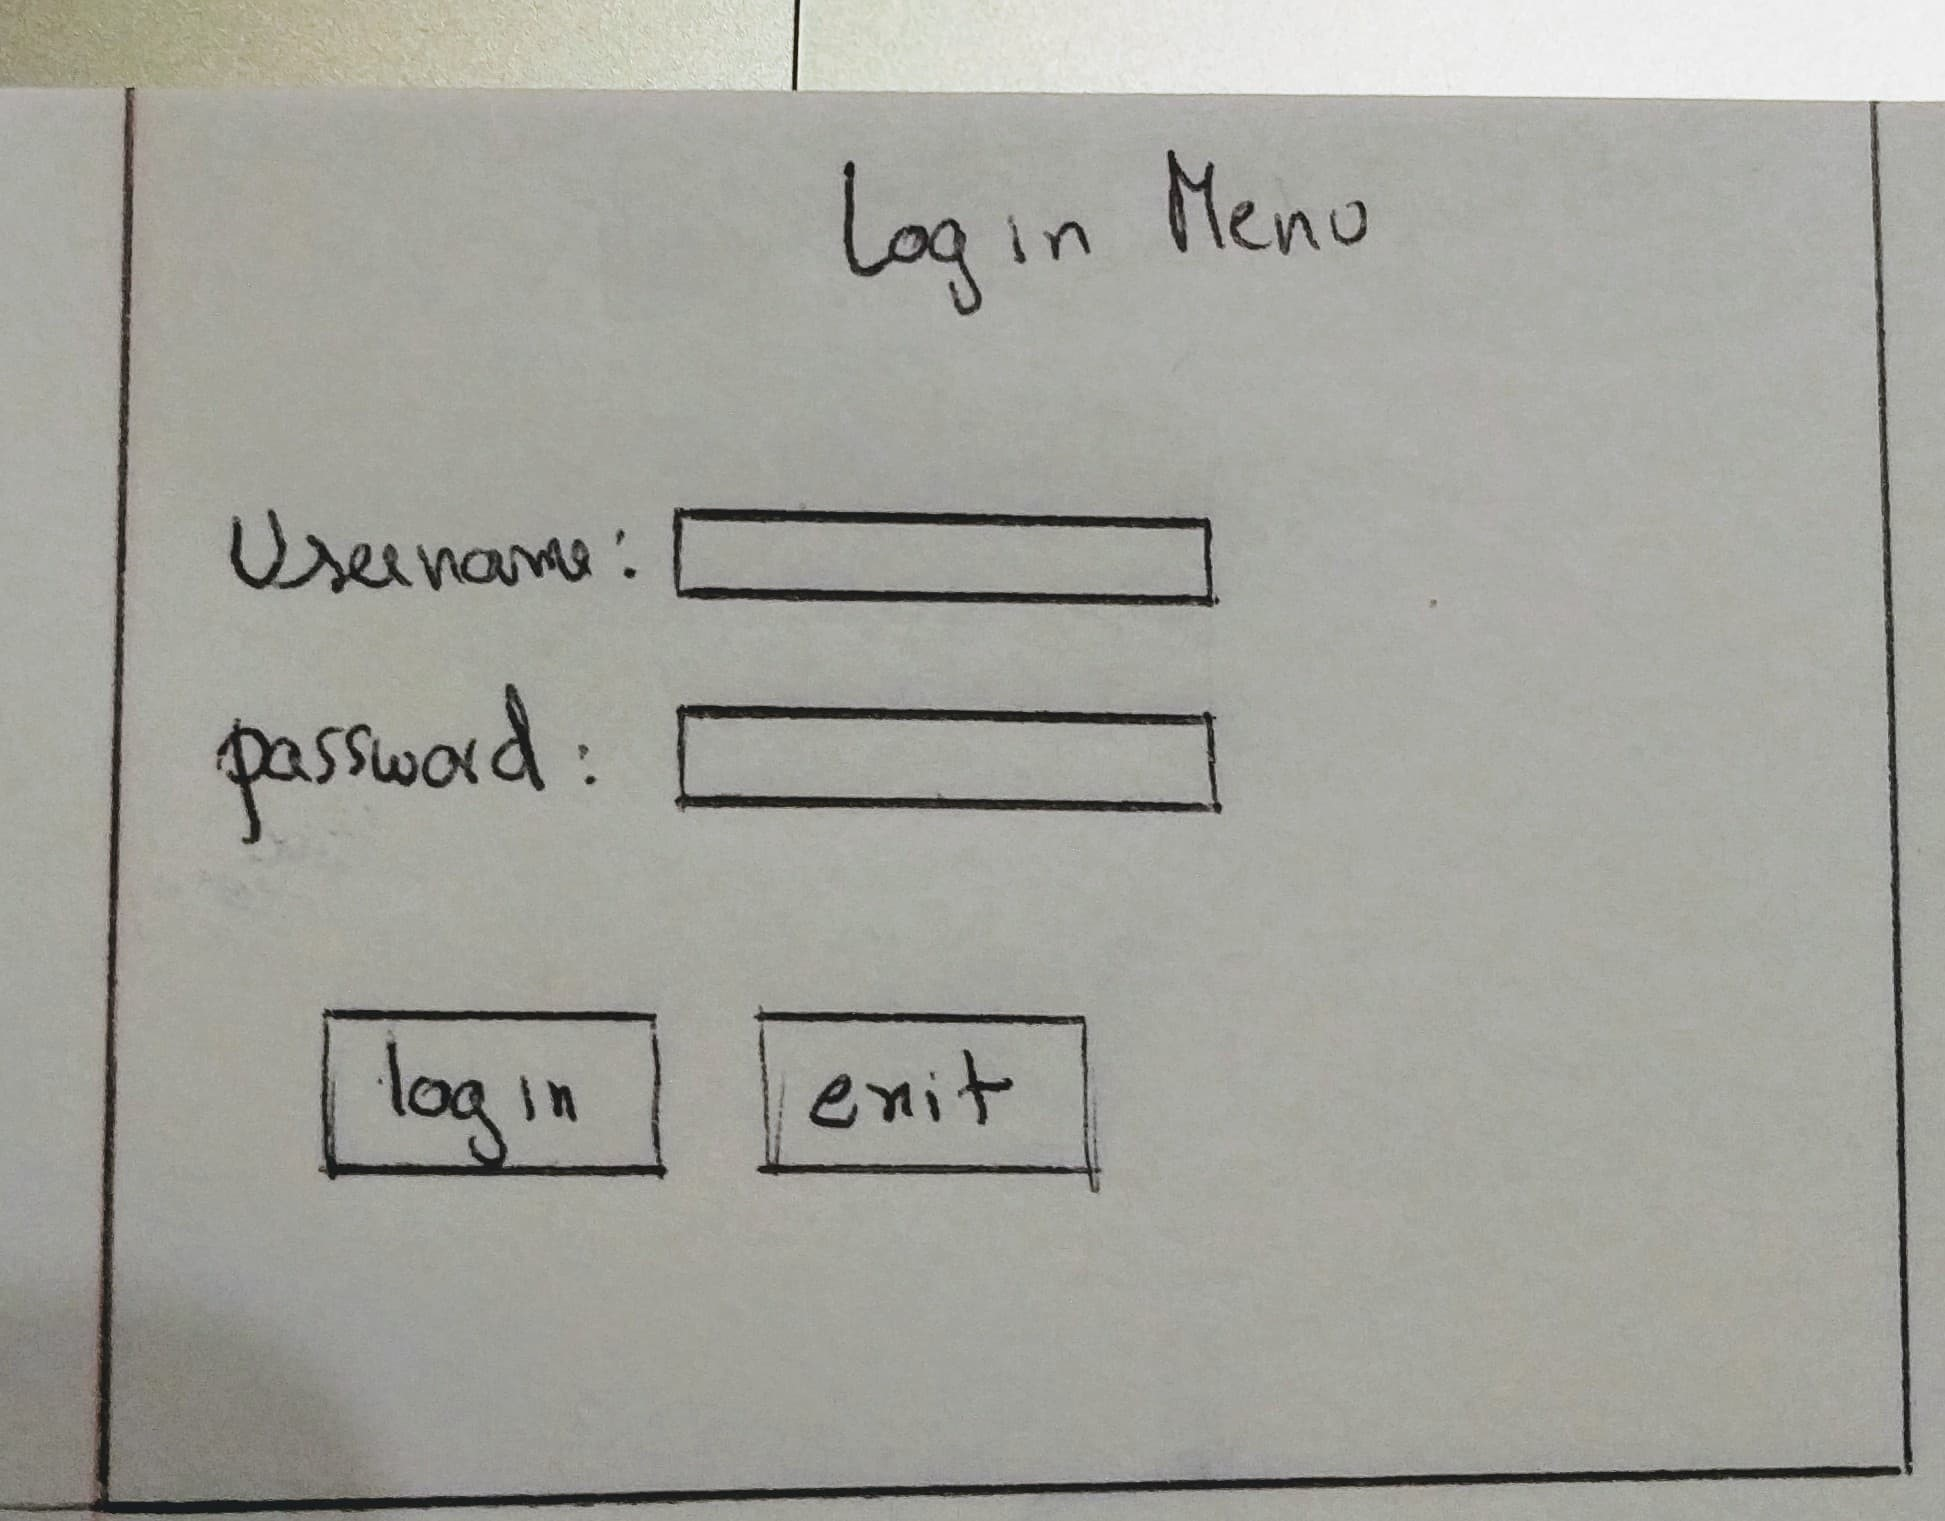 Login Menu
Username:
password:
login exit